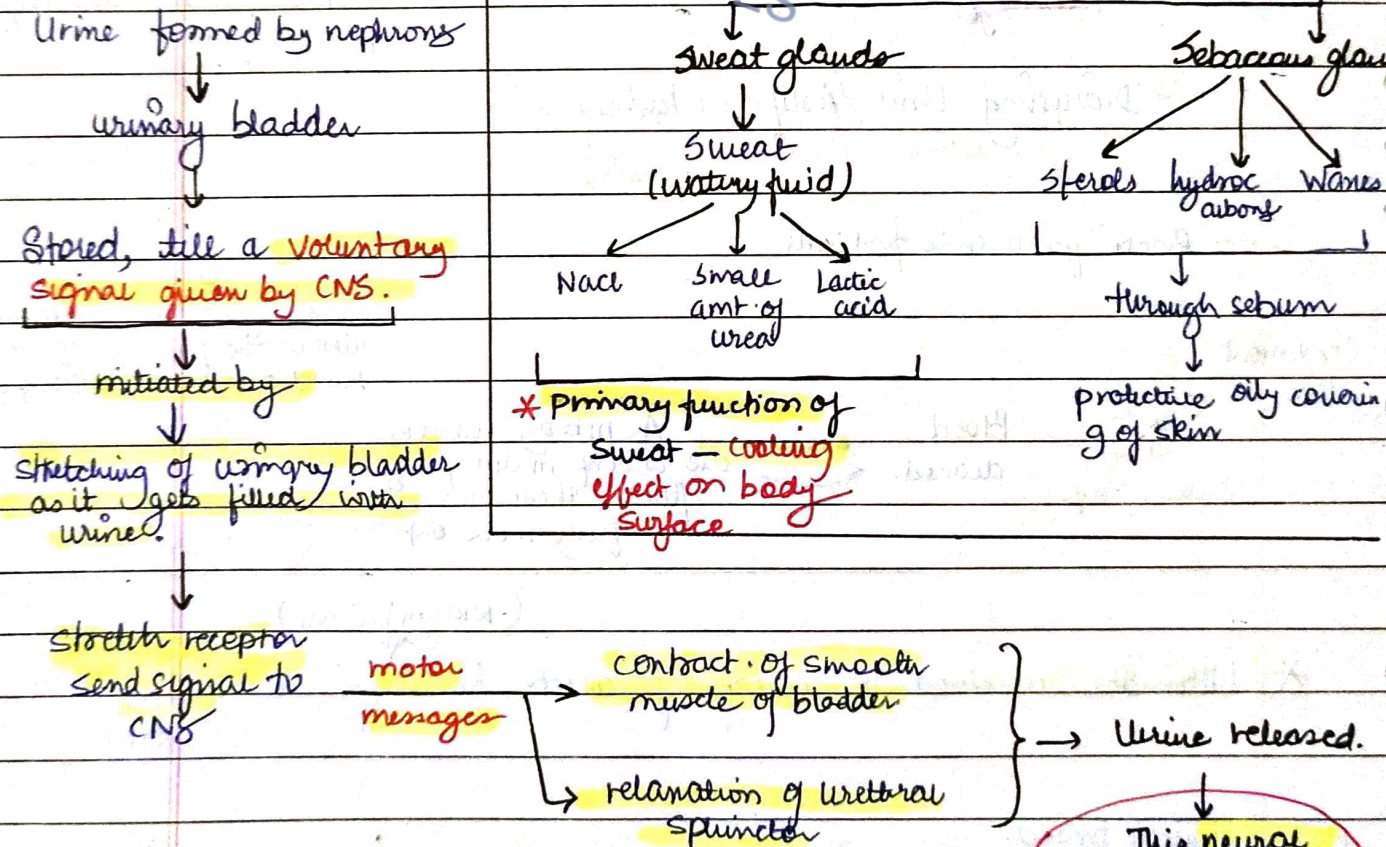 Urine formed by nephrons
urinary bladder
Stored, till a voluntary
signal given by CNS.
initiated by
stretching of urinary bladder
as it gets filled with
urine.
stretch receptor
send signal to
CNS
motor
messages
contract. of smooth
muscle of bladder
relaxation of urethral
sphincter
Urine released.
This neural
Sweat glands
Sweat
(watery fluid)
NaCl
Small
amt. of
urea
Lactic
acid
* primary function of
sweat – cooling
effect on body
surface
Sebaceous glan
Sterols
hydroc
arbons
Waxes
through sebum
protective oily coverin
g of skin